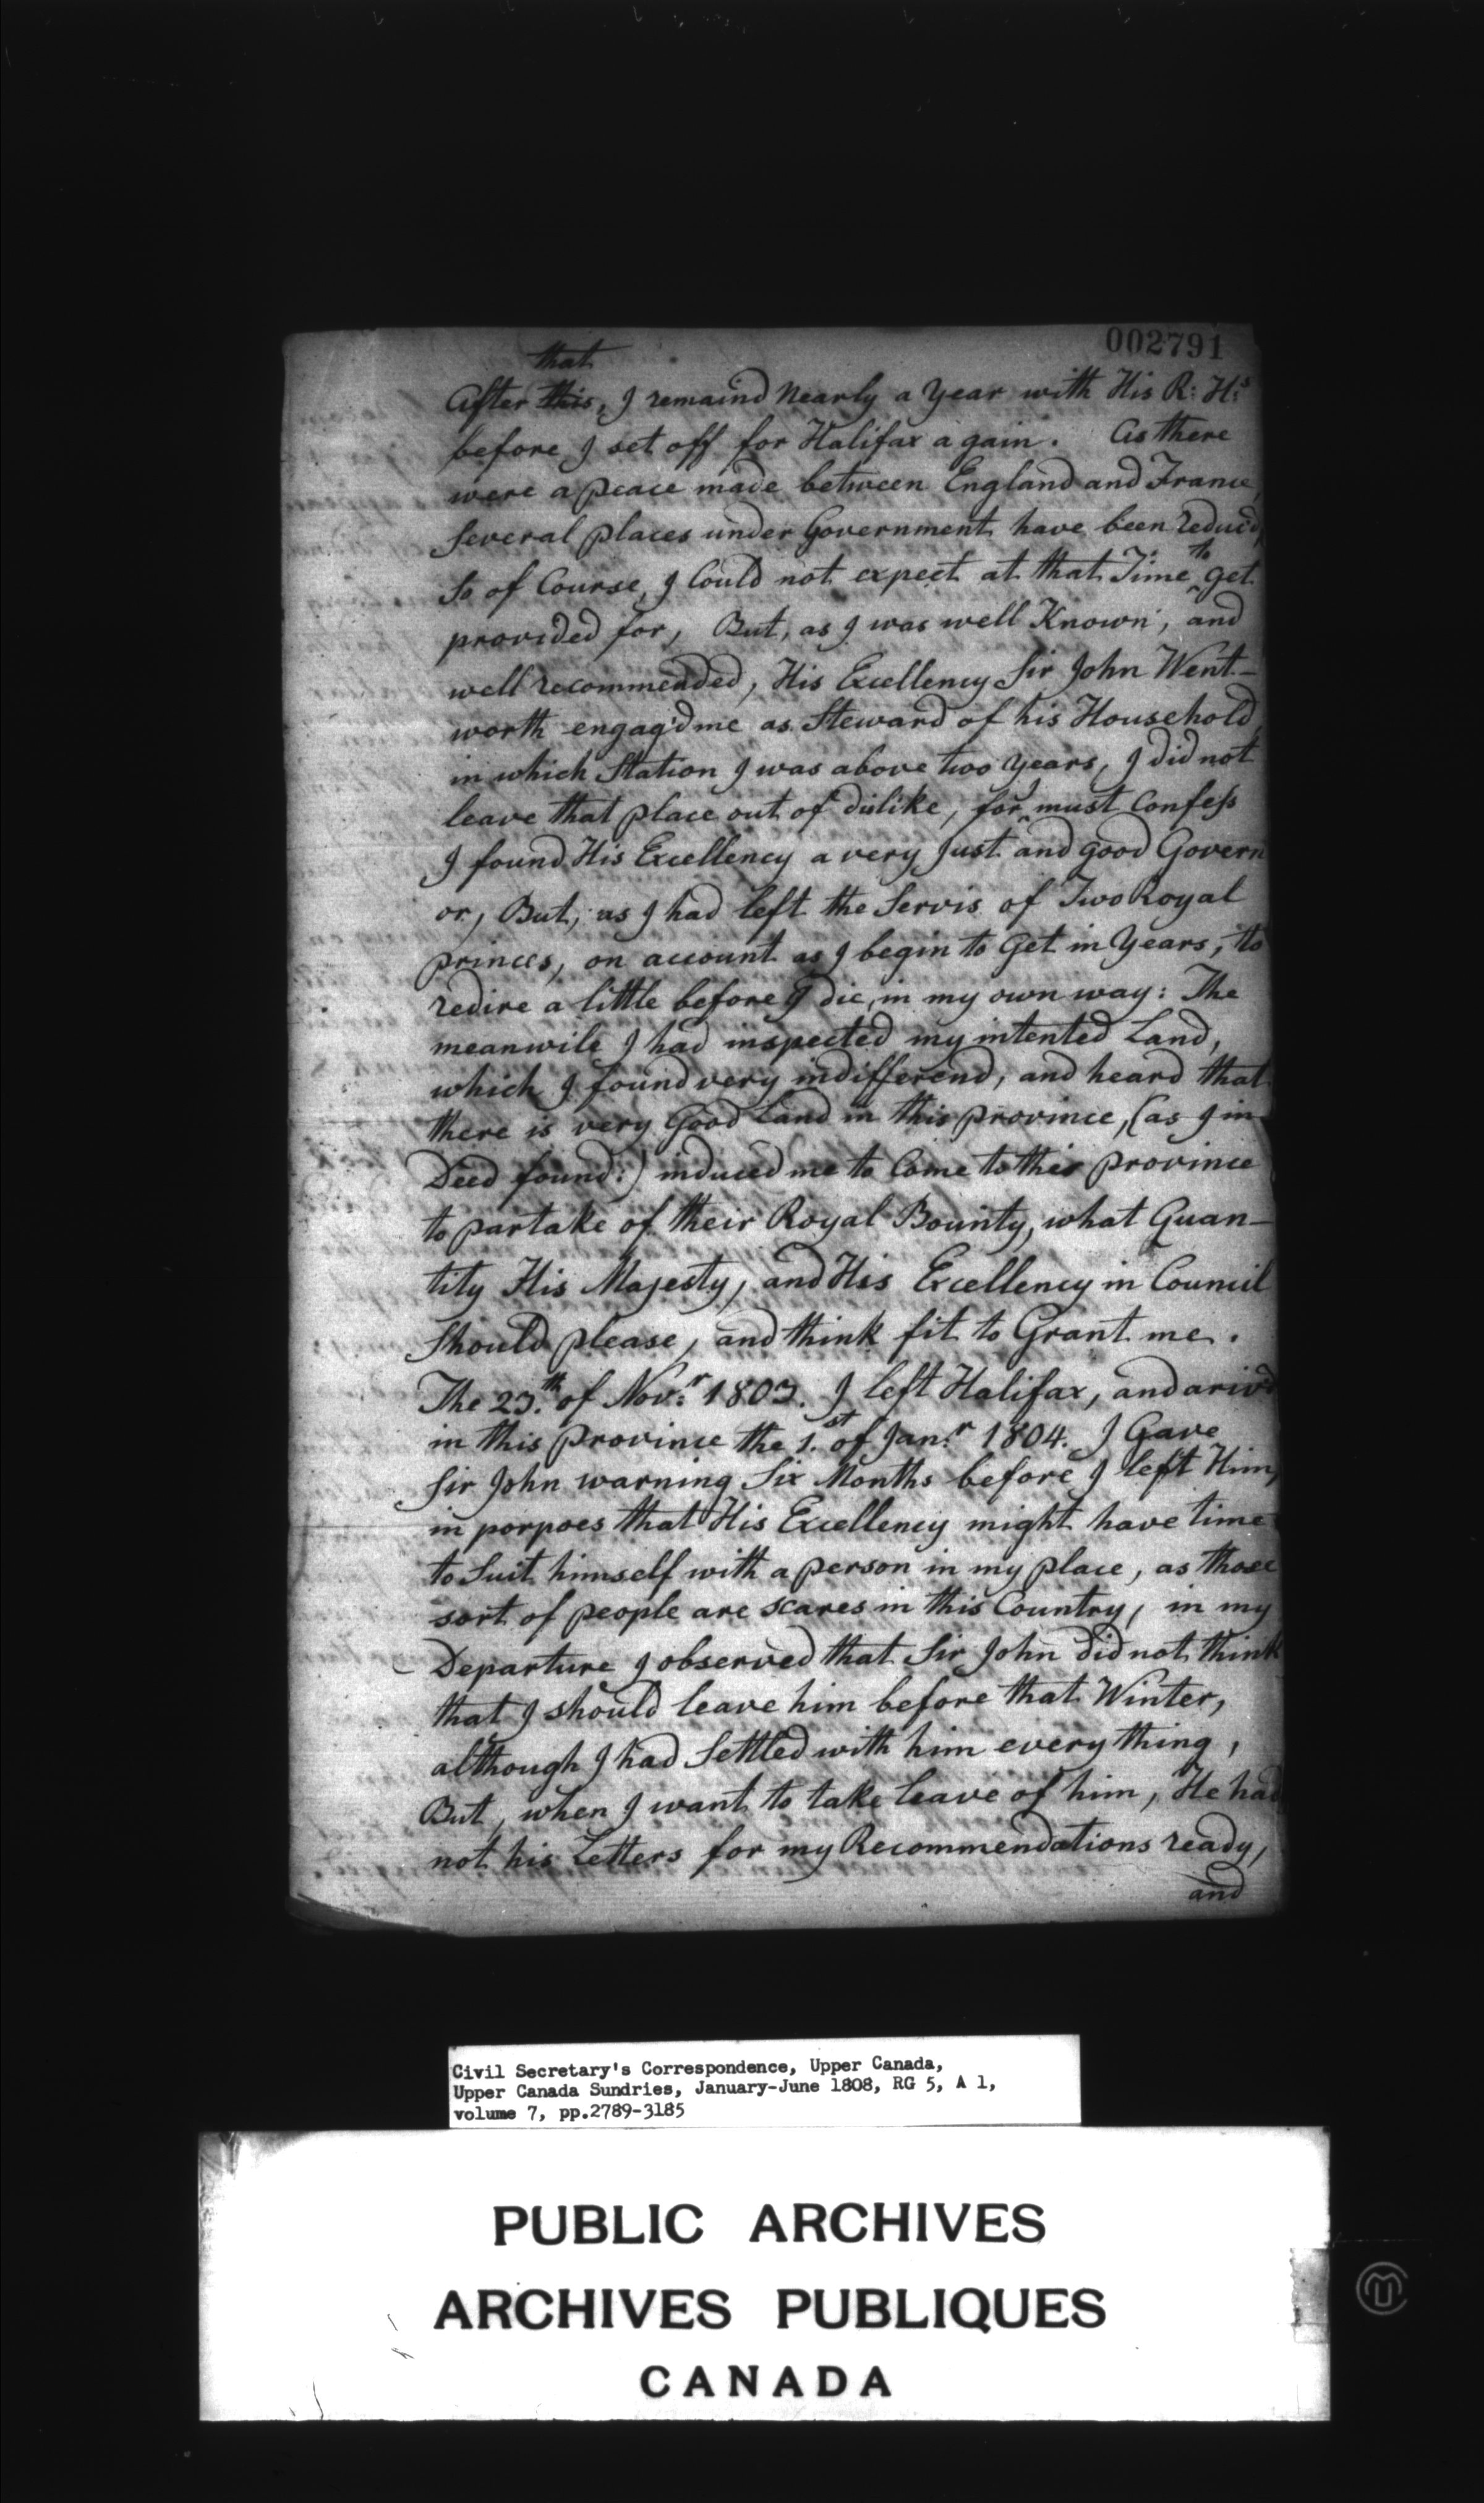 002791
that
After this, I remaind nearly a Year with His R: H:s
before I set off for Halifax a gain. As there
were a peace made between England and France,
Several places under Government have been reduc'd,
So of Course, I Could not expect at that Time to get
provided for, But, as I was well Known, and
well recommended, His Excellency Sir John Went-
worth engag'd me as Steward of his Household,
in which Station I was above two years, I did not
leave that place out of dislike, for I must Confess
I found His Excellency a very Just and good Govern
or, But, as I had left the Servis of Two Royal
princes, on account as I begin to Get in Years, to
redire a little before I die, in my own way: The
meanwile I had inspected my intented Land,
which I found very indifferend, and heard that
there is very Good Land in this province, (as I in
Deed found:) induced me to Come to this province
to partake of their Royal Bounty, what Quan-
tity His Majesty, and His Excellency in Council
Should please, and think fit to Grant me.
The 23.th of Nov:r 1803. I left Halifax, and ariv'd
in this province the 1.st of Jan:r 1804. I Gave
Sir John warning Six Months before I left Him,
in porpoes that His Excellency might have time
to Suit himself with a person in my place, as those
sort of people are scares in this Country, in my
Departure I observed that Sir John did not think
that I should leave him before that Winter,
although I had Settled with him every thing,
But, when I want to take leave of him, He had
not his Letters for my Recommendations ready,
and
Civil Secretary's Correspondence, Upper Canada,
Upper Canada Sundries, January-June 1808, RG 5, A 1,
volume 7, pp.2789-3185
PUBLIC ARCHIVES
ARCHIVES PUBLIQUES
CANADA